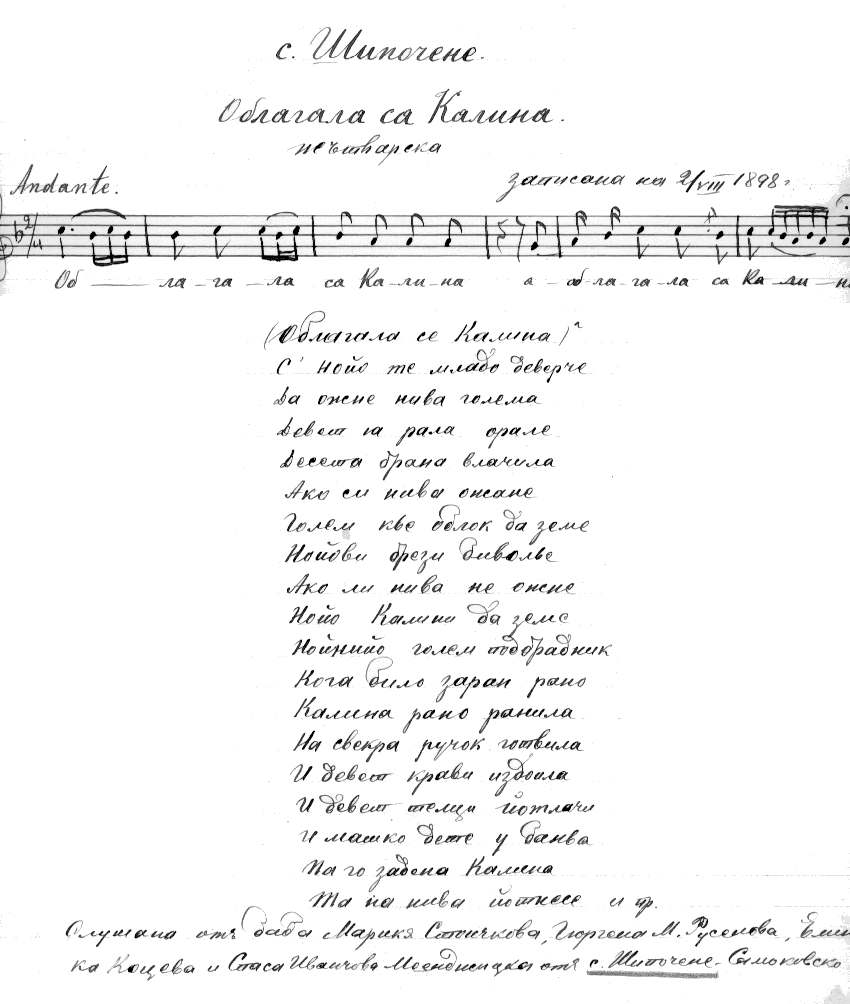 с. Шипочене.
Облагала са Калина.
записана на 2/VIII 1898 г
Andante.
2/4
Об — ла – га – ла са Ка – ли – на а – об – ла – га – ла са Ка – ли – на
(Облагала се Калина)²
С' нойо те младо деверче
Да ожне нива голема
Девет ѝа рала орале
Десета брана влачила
Ако си нива ожане
Голем кье облок да земе
Нойови брези биволье
Ако ли нива не ожне
Нойо Калини да земе
Нойнийо голем подбрадник
Кога било заран рано
Калина рано ранила
На свекра ручок готвила
И девет крави издоила
И девет телци йотлачи
И машко дете у банва
Па го задена Калина
Та па нива йотнесе и пр.
Слушана отъ баба Марикя Стоичкова, Гюргена М. Русенова, Емин
ка Коцева и Спаса Иванчова отъ с. Шипочене – Самоковско